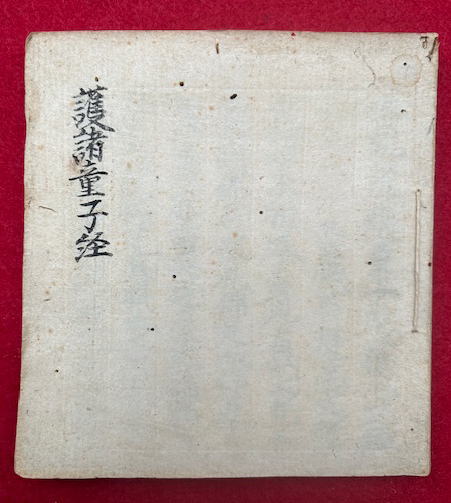 護諸童子経